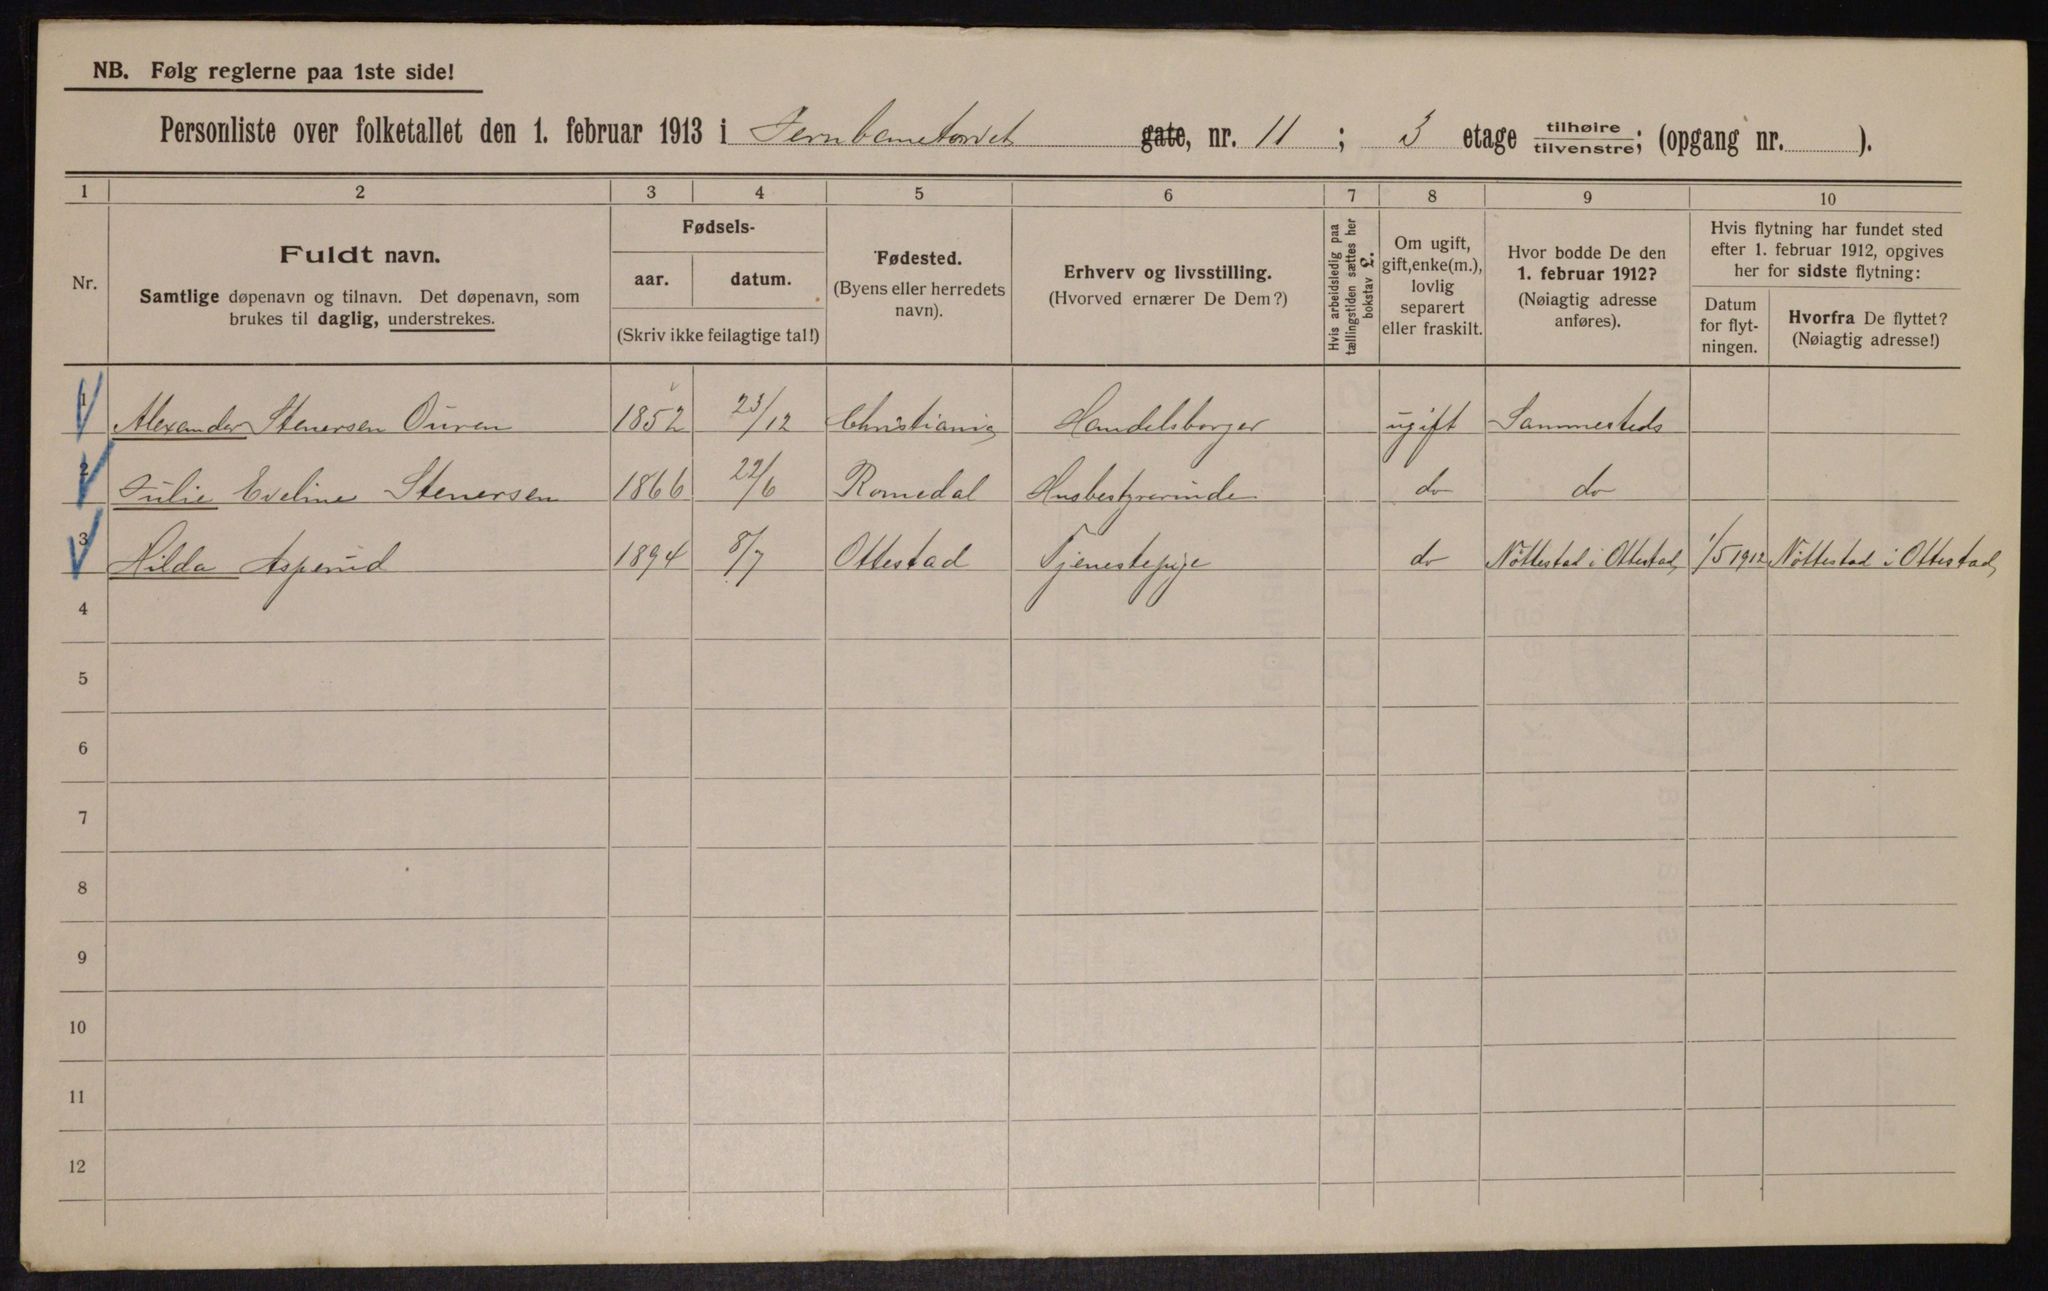 NB. Følg reglerne paa 1ste side!
Personliste over folketallet den 1. februar 1913 i Jernbanetorvet gate, nr. 11 ; 3 etage tilhøire tilvenstre; (opgang nr. ).
1 2 3 4 5 6 7 8 9 10
Nr.
Fuldt navn.
Samtlige døpenavn og tilnavn. Det døpenavn, som
brukes til daglig, understrekes.
Fødsels-
aar. datum.
(Skriv ikke feilagtige tal!)
Fødested.
(Byens eller herredets
navn).
Erhverv og livsstilling.
(Hvorved ernærer De Dem?)
Hvis arbeidsledig paa
tællingstiden sættes her
bokstav L.
Om ugift,
gift, enke(m.),
lovlig
separert
eller fraskilt.
Hvor bodde De den
1. februar 1912?
(Nøiagtig adresse
anføres).
Hvis flytning har fundet sted
efter 1. februar 1912, opgives
her for sidste flytning:
Datum
for flyt-
ningen.
Hvorfra De flyttet?
(Nøiagtig adresse!)
1 Alexander Stenersen Ouren 1852 23/12 Christiania Handelsborger ugift Sammesteds
2 Julie Eveline Stenersen 1866 22/6 Romedal Husbestyrerinde do do
3 Hilda Asperud 1894 8/7 Ottestad Tjenestepige do Nöttestad i Ottestad, 1/5 1912 Nöttestad i Ottestad,
4
5
6
7
8
9
10
11
12